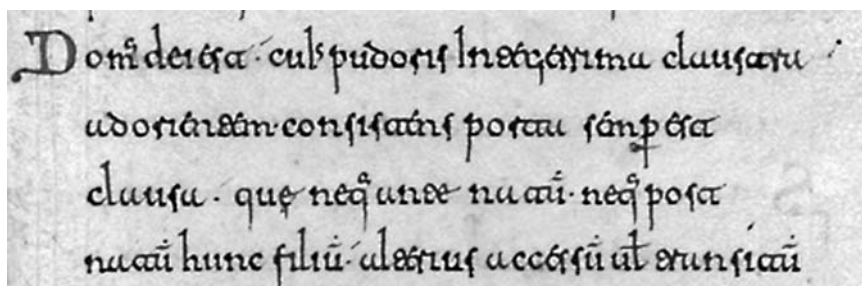 Domꝰ dei est· cuiꝰ pudoris Integerrima clausura
adorientem· consistens porta semꝑ est
clausa· quę neqꝫ ante natū· neqꝫ post
natū hunc filiū· alterius accessū uł transitū